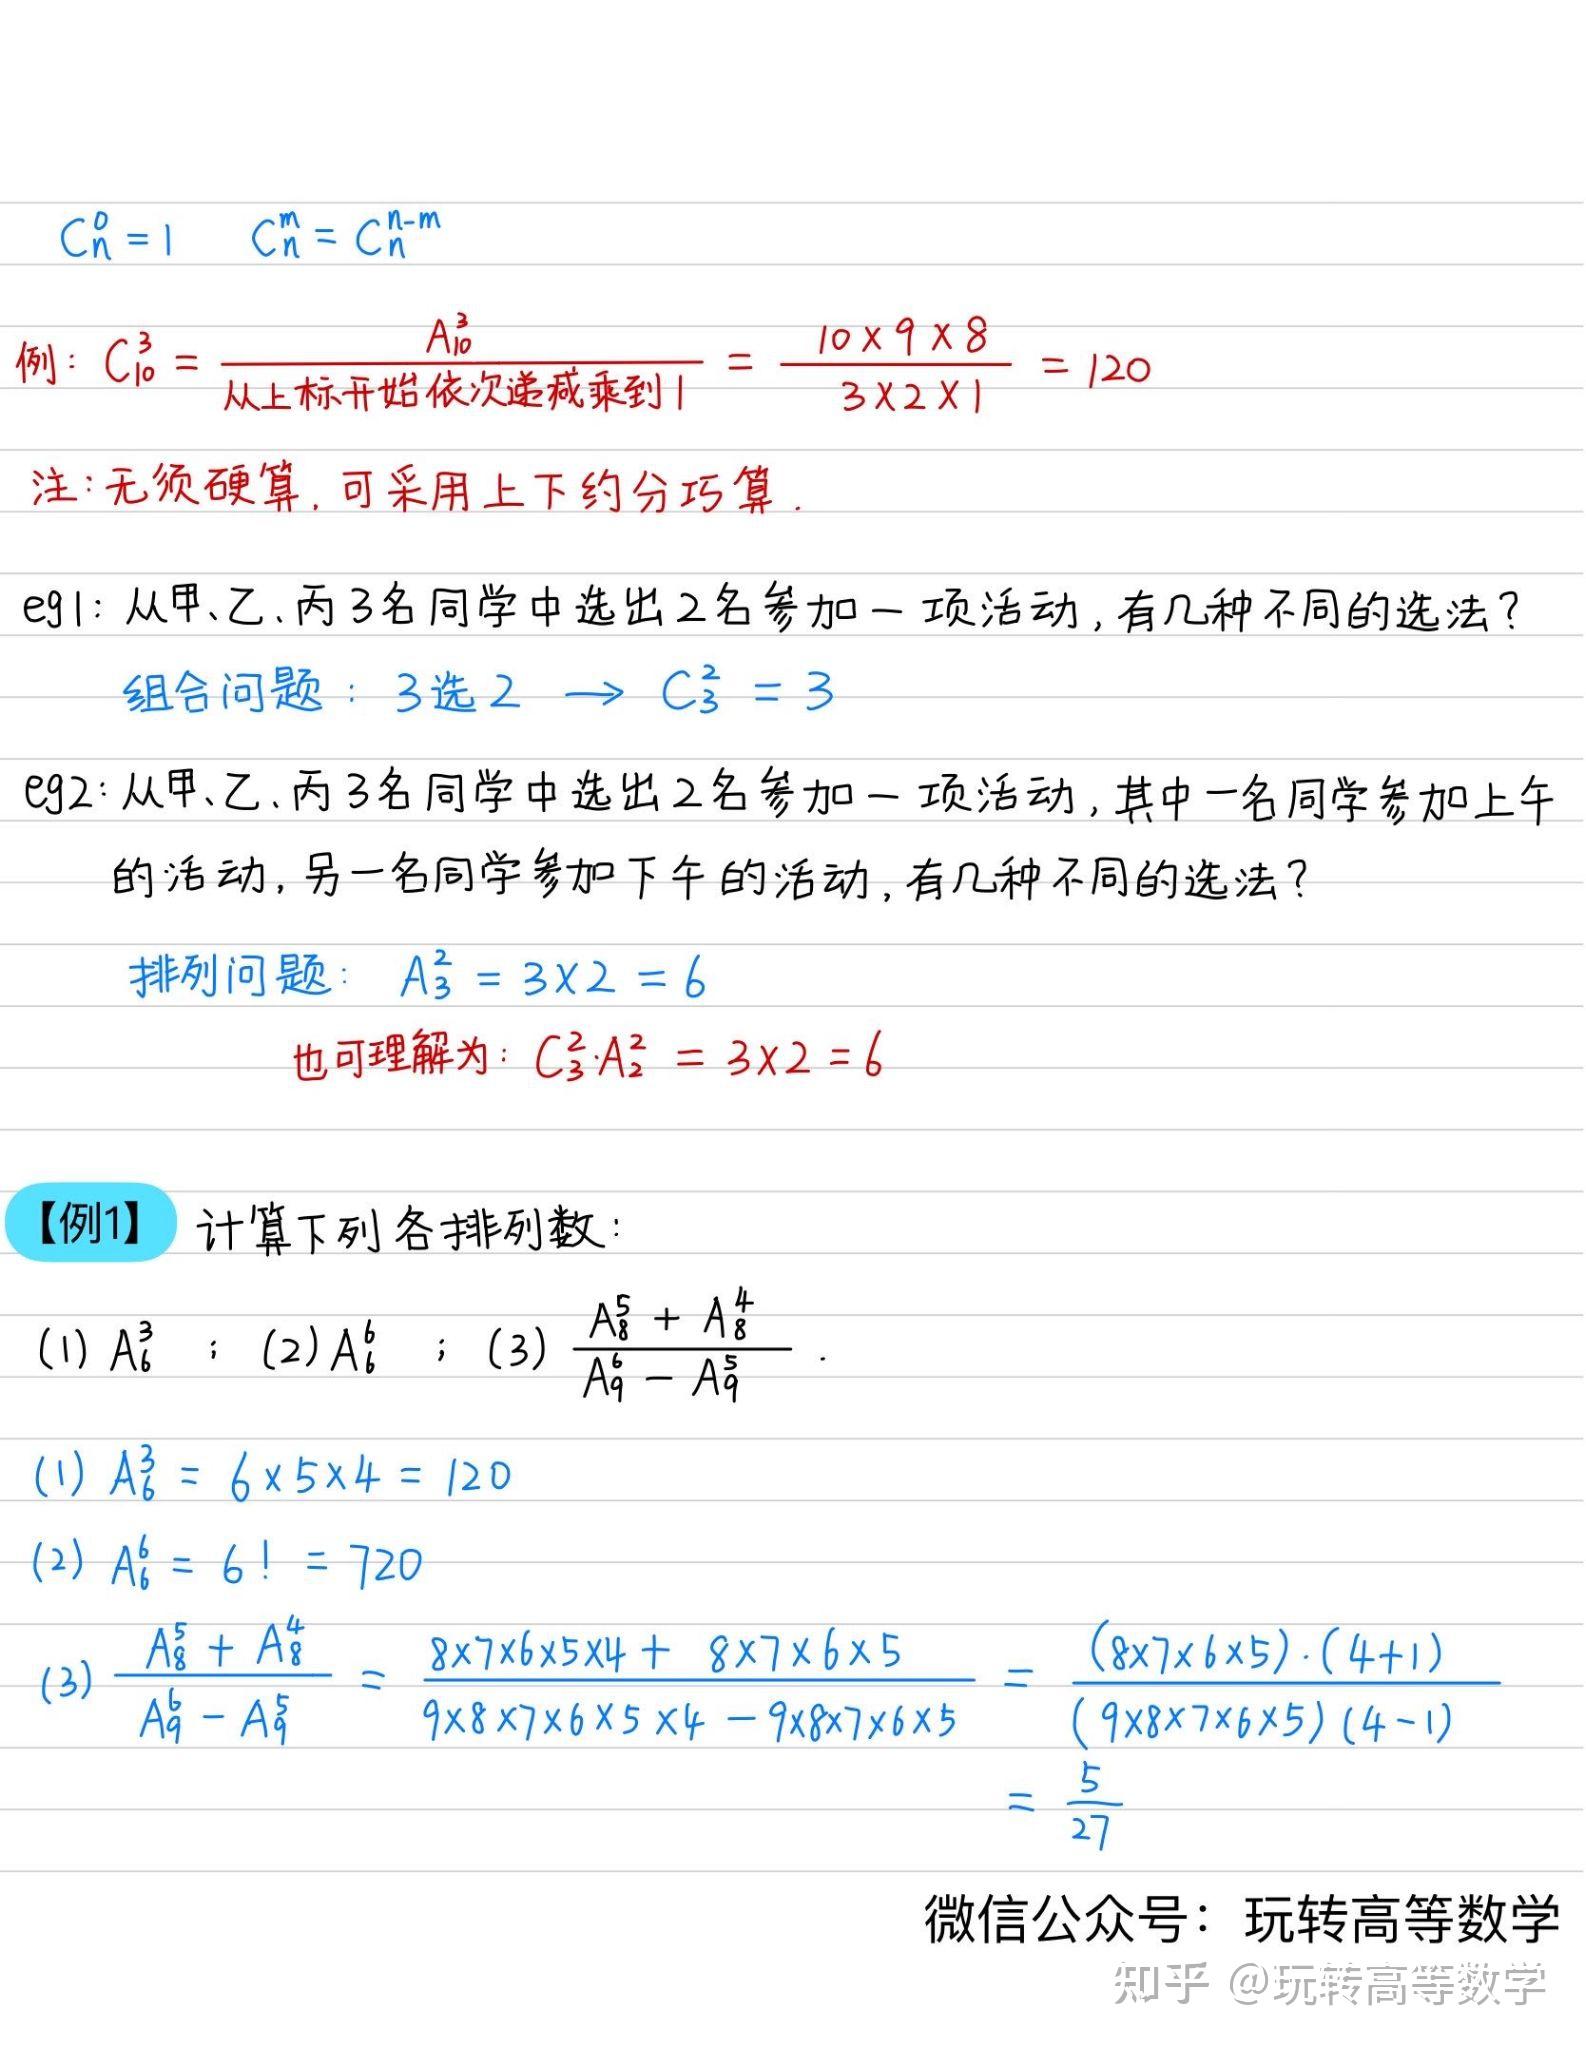 C_n^0 = 1  C_n^m = C_n^{n-m}
例: C_{10}^3 = \frac{A_{10}^3}{从上标开始依次递减乘到1} = \frac{10×9×8}{3×2×1} = 120
注:无须硬算,可采用上下约分巧算.
eg1: 从甲、乙、丙3名同学中选出2名参加一项活动,有几种不同的选法?
组合问题: 3选2 → C_3^2 = 3
eg2: 从甲、乙、丙3名同学中选出2名参加一项活动,其中一名同学参加上午
的活动,另一名同学参加下午的活动,有几种不同的选法?
排列问题: A_3^2 = 3×2 = 6
也可理解为: C_3^2·A_2^2 = 3×2 = 6
【例1】 计算下列各排列数:
(1) A_6^3 ; (2) A_6^6 ; (3) \frac{A_8^5 + A_8^4}{A_9^6 - A_9^5} .
(1) A_6^3 = 6×5×4 = 120
(2) A_6^6 = 6! = 720
(3) \frac{A_8^5 + A_8^4}{A_9^6 - A_9^5} = \frac{8×7×6×5×4 + 8×7×6×5}{9×8×7×6×5×4 - 9×8×7×6×5} = \frac{(8×7×6×5)·(4+1)}{(9×8×7×6×5)(4-1)}
= \frac{5}{27}
微信公众号：玩转高等数学
知乎 @玩转高等数学